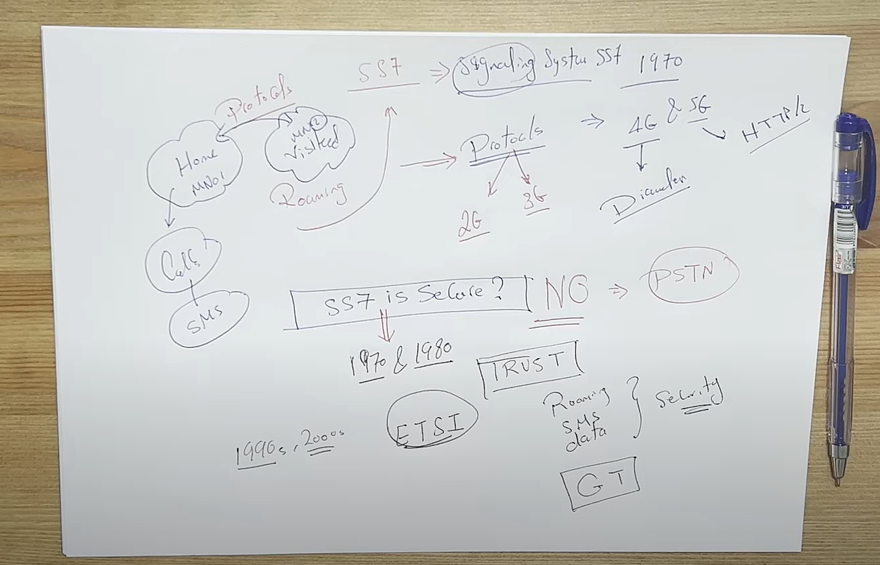 SS7 ⇒ Signaling System SS7 1970
Protocols
Home
MNO1
MNO2
Visited
Roaming
Protocols ⇒ 4G & 5G
HTTP/2
2G 3G
Diameter
Calls
SMS
SS7 is Secure? NO ⇒ PSTN
1970 & 1980
TRUST
ETSI
1990s, 2000s
Roaming
SMS
data
Security
GT
Flair